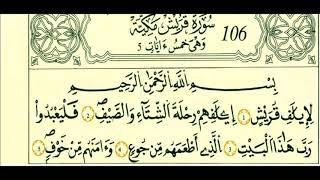 سُورَةُ قُرَيْشٍ مَكِّيَّةٌ 106
وَهِيَ خَمْسُ ءَايَاتٍ 5
بِسْمِ اللَّهِ الرَّحْمَٰنِ الرَّحِيمِ
لِإِيلَٰفِ قُرَيْشٍ 1 إِۦلَٰفِهِمْ رِحْلَةَ الشِّتَآءِ وَالصَّيْفِ 2 فَلْيَعْبُدُوا
رَبَّ هَٰذَا الْبَيْتِ 3 الَّذِي أَطْعَمَهُم مِّن جُوعٍ 4 وَءَامَنَهُم مِّنْ خَوْفٍ 5